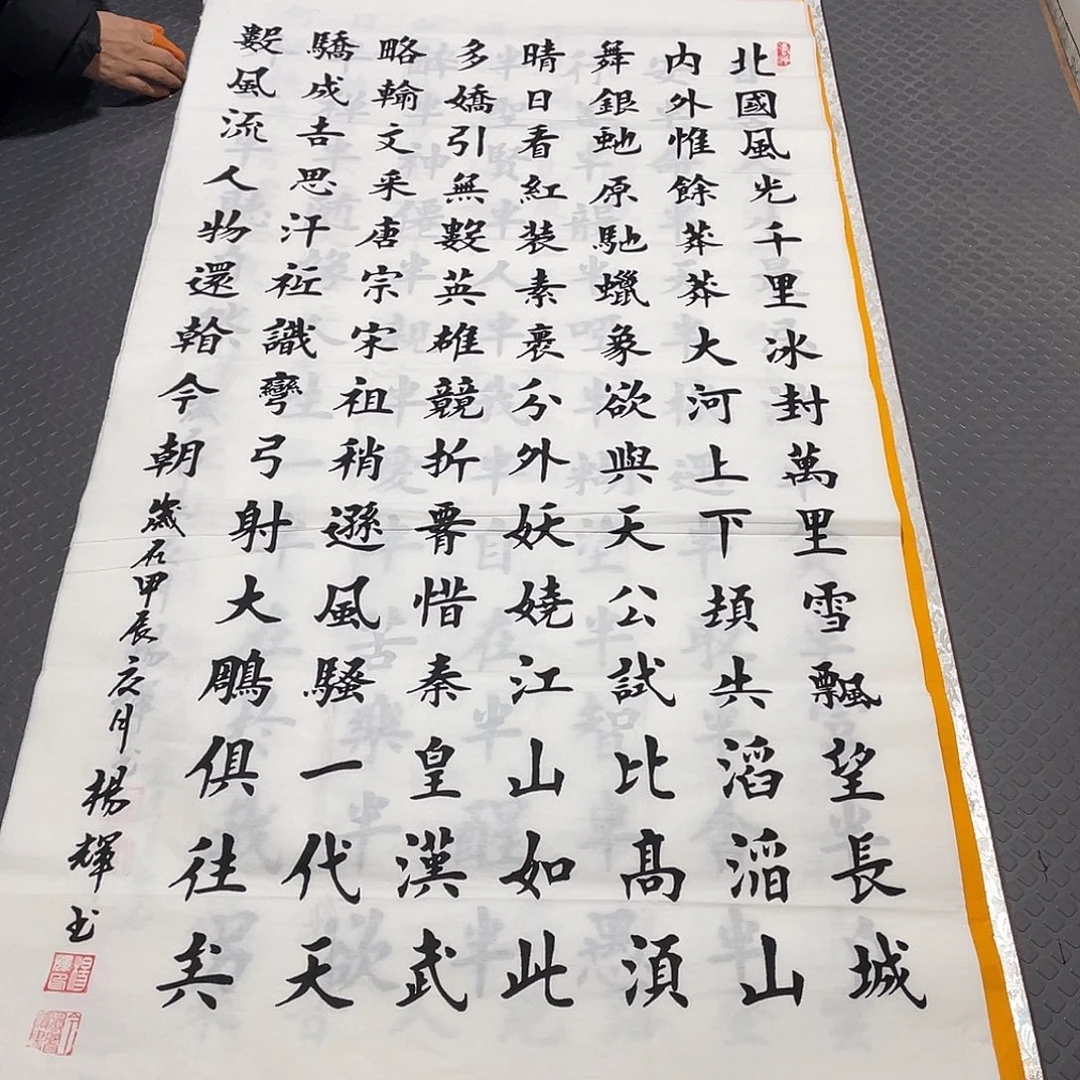 北國風光千里冰封萬里雪飄望長城
内外惟餘莽莽大河上下頓失滔滔山
舞銀虵原馳蠟象欲與天公試比高須
晴日看紅装素裹分外妖嬈江山如此
多嬌引無數英雄競折腰惜秦皇漢武
略輸文采唐宗宋祖稍遜風騷一代天
驕成吉思汗衹識彎弓射大鵰俱往矣
數風流人物還看今朝 歲在甲辰月楊輝书